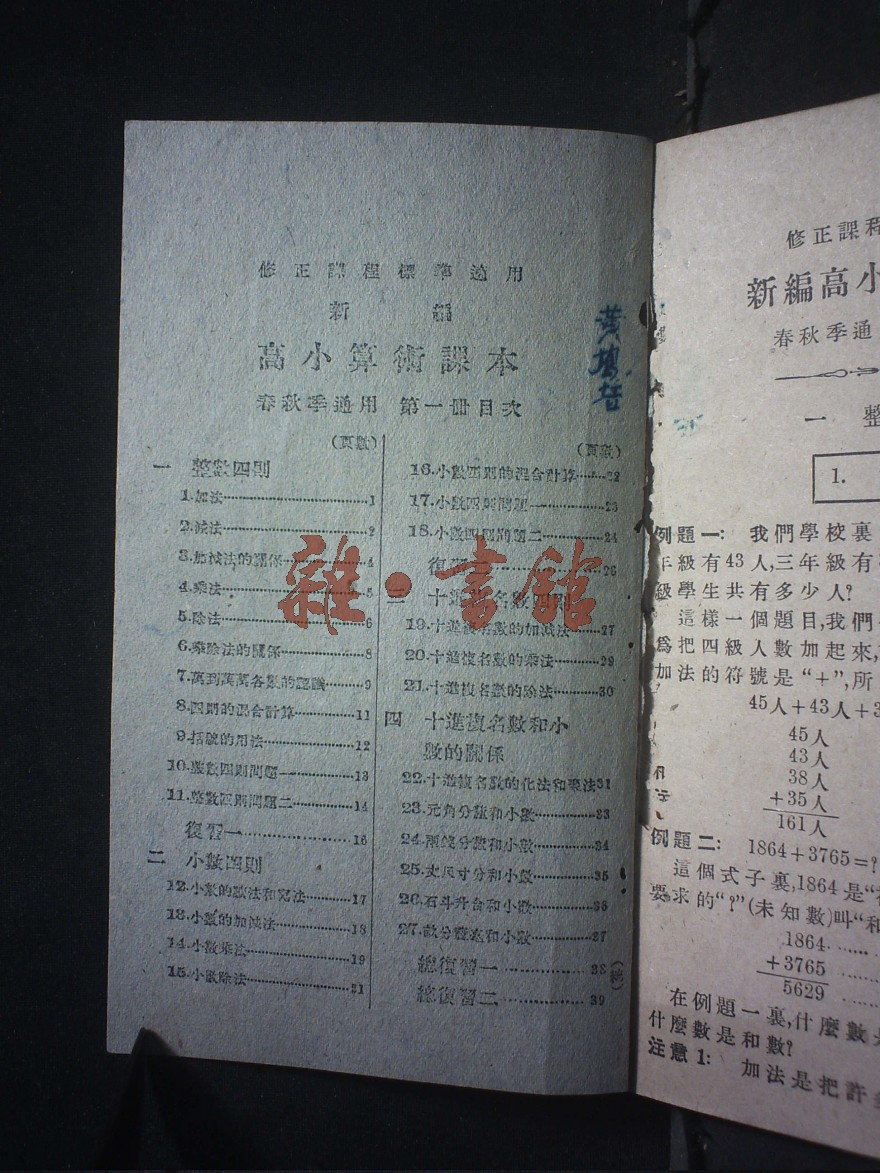 修正課程標準適用
新編
高小算術課本
春秋季通用 第一册目次
(頁數)
一 整數四則
1.加法 1
2.減法 2
3.加減法的關係 4
4.乘法 5
5.除法 6
6.乘除法的關係 8
7.萬到萬萬各數的認識 9
8.四則的混合計算 11
9.括號的用法 12
10.整數四則問題一 13
11.整數四則問題二 14
復習一 16
二 小數四則
12.小數的數法和寫法 17
13.小數的加減法 18
14.小數乘法 19
15.小數除法 21
(頁數)
16.小數四則的混合計算 22
17.小數四則問題一 23
18.小數四則問題二 24
復習 26
三 十進複名數四則
19.十進複名數的加減法 27
20.十進複名數的乘法 29
21.十進複名數的除法 30
四 十進複名數和小
數的關係
22.十進複名數的化法和聚法 31
23.元角分數和小數 33
24.兩錢分數和小數 34
25.丈尺寸分和小數 35
26.石斗升合和小數 36
27.畝分釐毫和小數 37
總復習一 38
總復習二 39
雜·書館
修正課程
新編高小
春秋季通
一 整
1.
例題一: 我們學校裏
年級有43人,三年級有
級學生共有多少人?
這樣一個題目,我們
爲把四級人數加起來,
加法的符號是“+”,所
45人+43人+3
45人
43人
38人
+35人
161人
例題二: 1864+3765=?
這個式子裏,1864是“
要求的“?”(未知數)叫“和
1864
+3765
5629
在例題一裏,什麼數是
什麼數是和數?
注意1: 加法是把許